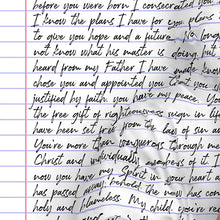 before you were born I consecrated you
I know the plans I have for you, plans
to give you hope and a future. No long
not know what his master is doing, but
heard from my Father I have made kno
chose you and appointed you that you s
justified by faith, you have my peace. Yo
the free gift of righteousness reign in life
have been set free from the law of sin an
You're more than conquerors through me
Christ and individually members of it. I
now you have my Spirit in your heart a
has passed away; behold, the new has com
holy and blameless. My child, you're no